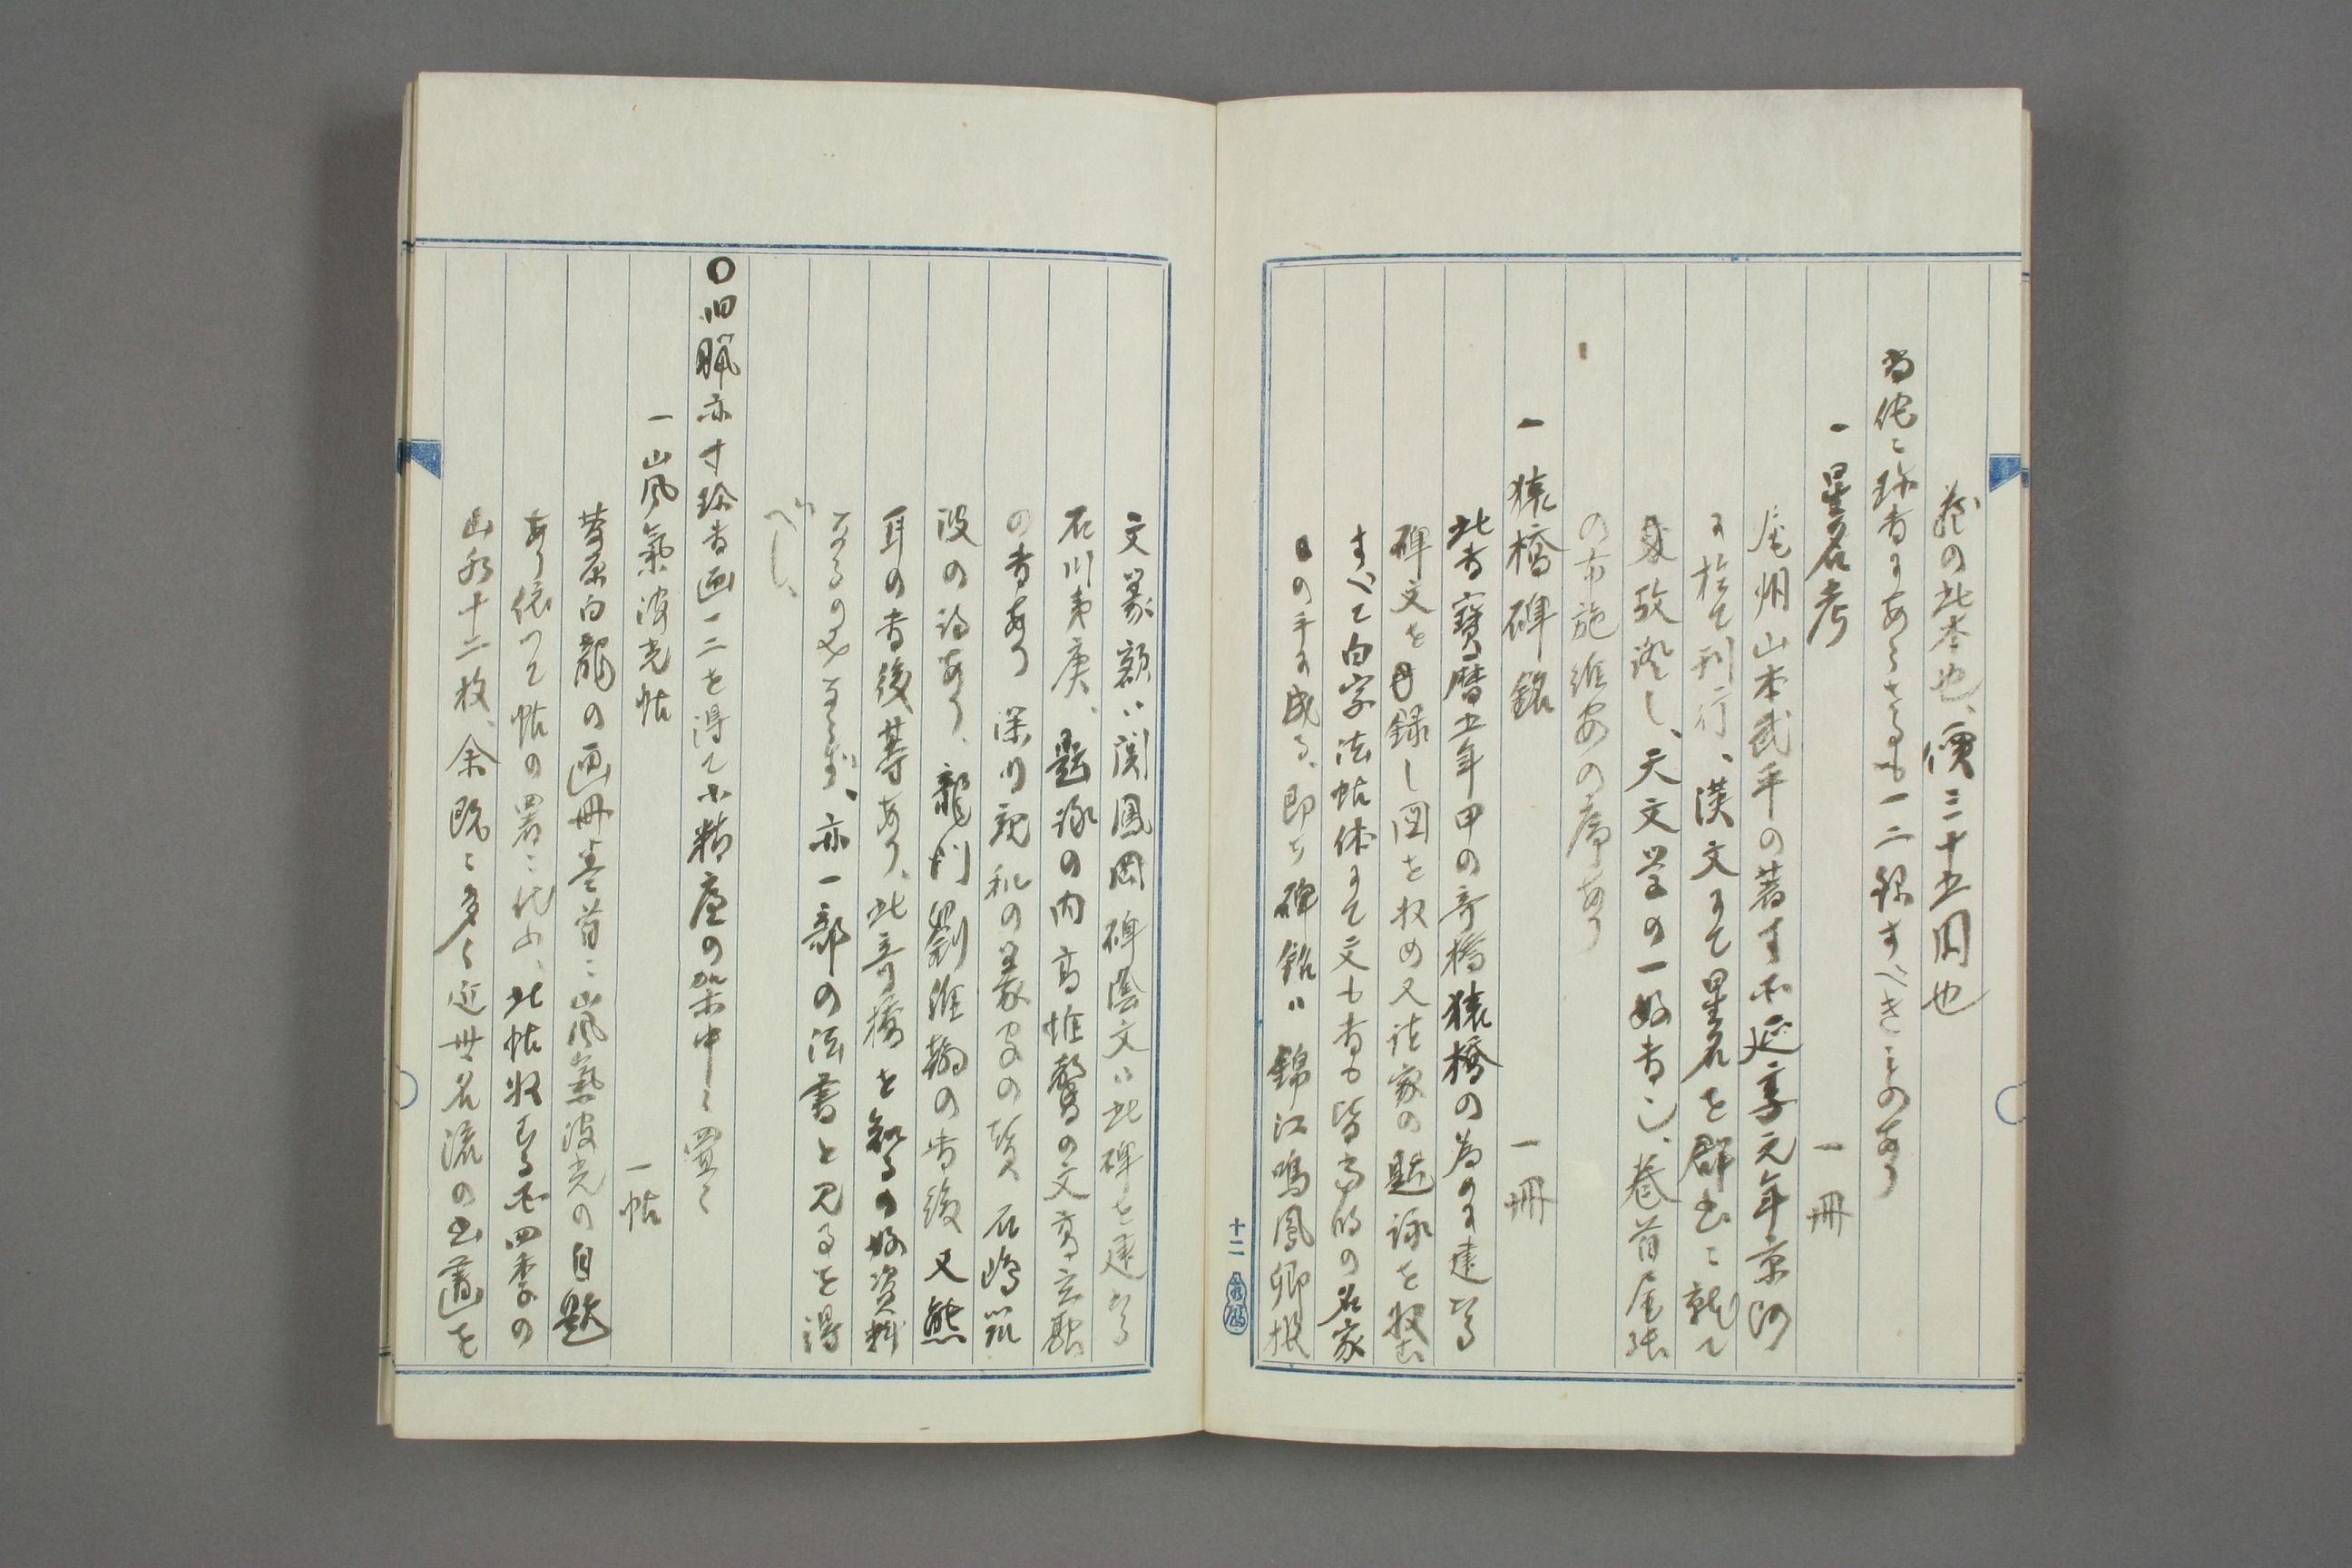 蔵の此本也、價三十五圓也
當佗ニ珍書にあらざるも一二録すべきものあり
一星名考 一冊
尾州山本武平の著す所延享元年京師
に於て刊行、漢文にて星名を群書ニ就て
攷證し、天文学の一好書也、巻首尾張
の布施維安の序あり
一猿橋碑銘 一冊
此書寶暦五年甲の奇橋猿橋の為めに建たる
碑文を録し図を収め又諸家の題詠を収む
すべて白字法帖体にて文も書も皆当時の名家
の手に成る、即ち碑銘ハ錦江鳴鳳卿撰
十二
文篆額ハ関鳳岡碑陰文ハ此碑を建たる
石川東庚、題詠の内高惟馨の文高玄融
の書あり 深川親和の篆家の賛 石嶋筑
波の詩あり、龍門劉維翰の書後又熊
耳の書後等あり、此奇橋を知るの好資料
なるのみならず、亦一部の法書と見るを得
べし、
〇旧臘亦寸珍書画一二を得て小精廬の架中ニ置く
一山風氣波光帖 一帖
菅原白龍の画冊巻首ニ山風氣波光の自題
あり依つて帖の署ニ代ふ、此帖収むる所四季の
山水十二枚、余既ニ多く近世名流の書画を